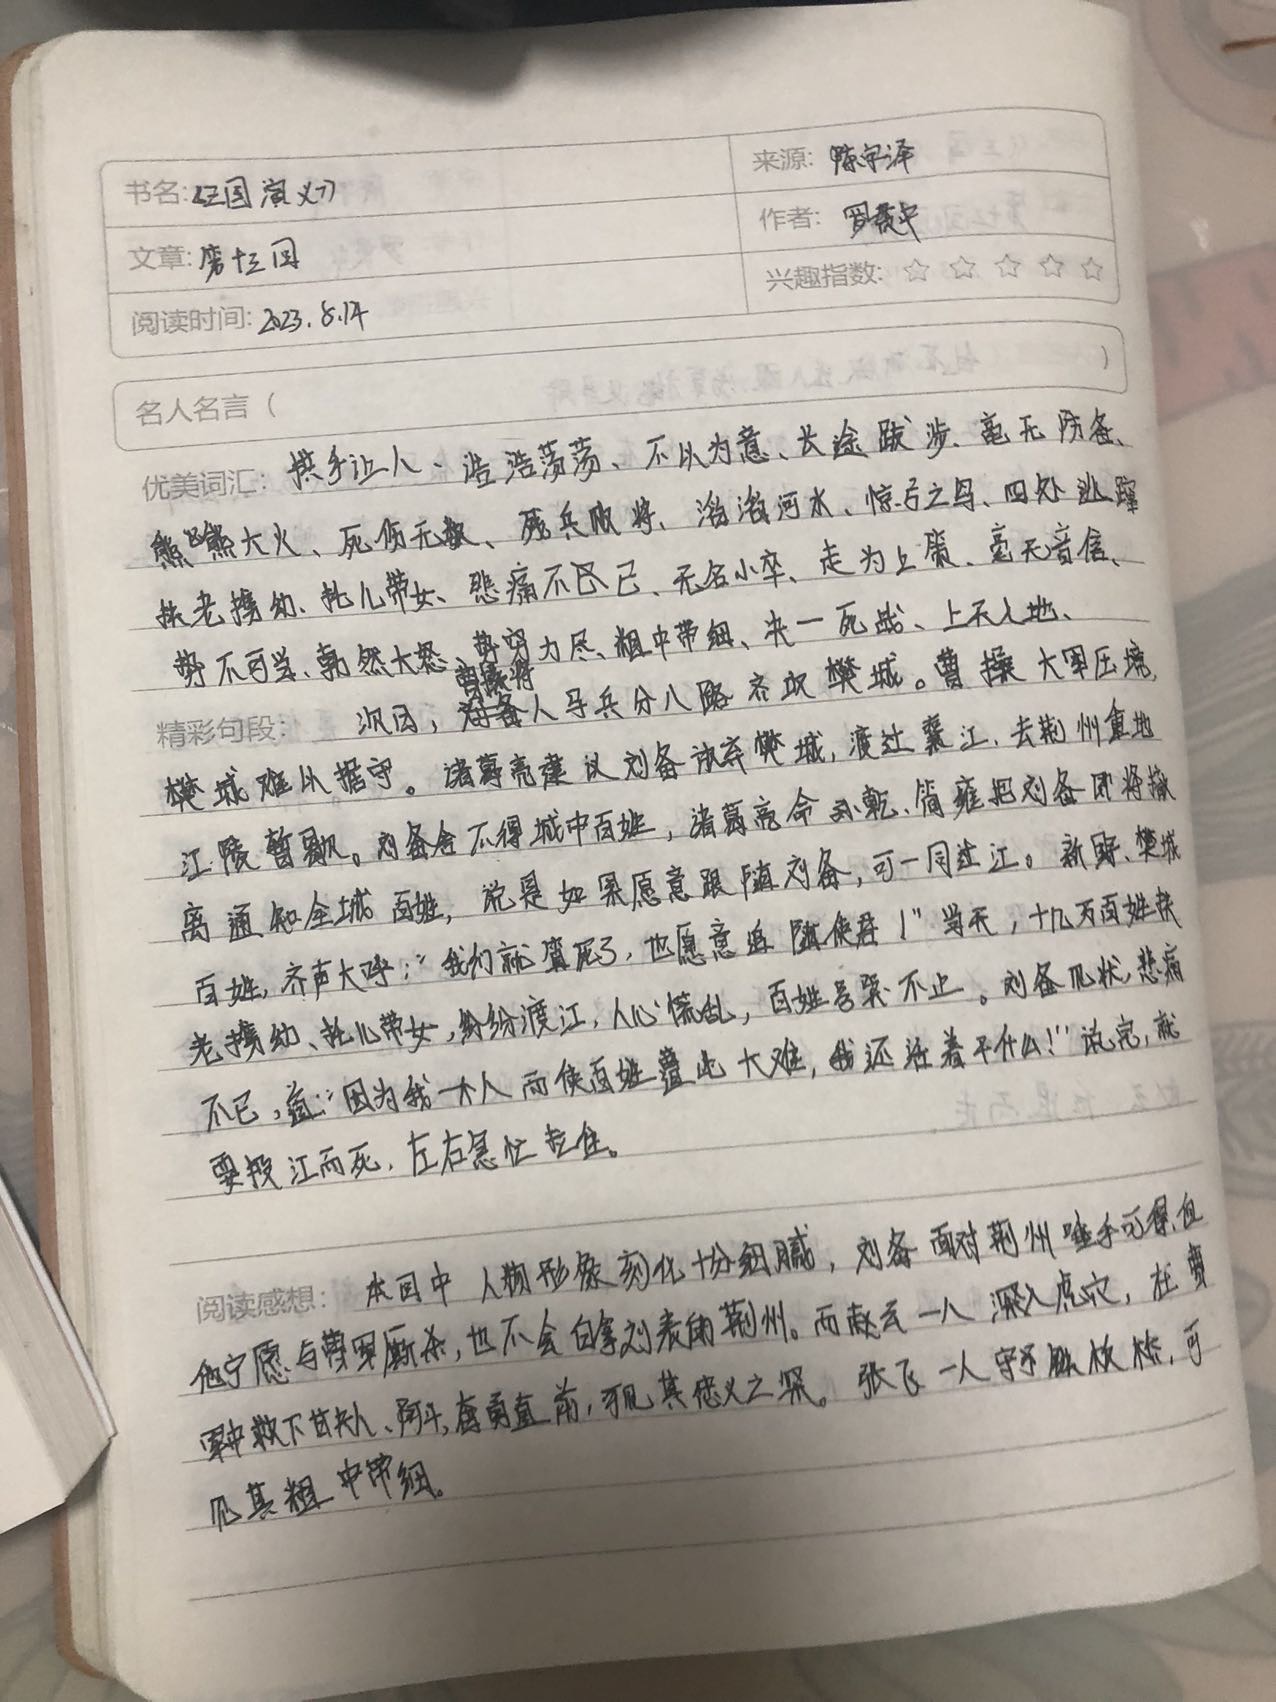 书名:《三国演义》
来源: 陈宇泽
作者: 罗贯中
文章: 第十三回
兴趣指数: ☆ ☆ ☆ ☆ ☆
阅读时间: 2023.8.14
名人名言 ( )
优美词汇: 拱手让人、浩浩荡荡、不以为意、长途跋涉、毫无防备、
熊熊大火、死伤无数、死兵败将、滔滔河水、惊弓之鸟、四处逃蹿
扶老携幼、扎儿带女、悲痛不已、无名小卒、走为上策、毫无音信、
势不可当、勃然大怒、势穷力尽、粗中带细、决一死战、上天入地、
曹操将
精彩句段: 次日,人马兵分八路齐攻樊城。曹操大军压境,
樊城难以据守。诸葛亮建议刘备放弃樊城,渡过襄江,去荆州重地
江陵暂歇。刘备舍不得城中百姓,诸葛亮命孙乾、简雍把刘备即将撤
离通知全城百姓,说是如果愿意跟随刘备,可一同过江。新野、樊城
百姓,齐声大呼:“我们就算死了,也愿意追随使君!”当天,十几万百姓扶
老携幼、扎儿带女,纷纷渡江,人心慌乱,百姓号哭不止。刘备见状,悲痛
不已,道:“因为我一人而使百姓遭此大难,我还活着干什么!”说完,就
要投江而死,左右急忙拦住。
阅读感想: 本回中人物形象刻化十分细腻,刘备面对荆州唾手可得,但
他宁愿与曹军厮杀,也不会白拿刘表的荆州。而赵云一人深入虎穴,在曹
军中救下甘夫人、阿斗,奋勇直前,可见其信义之深。张飞一人守板桥,可
见其粗中带细。